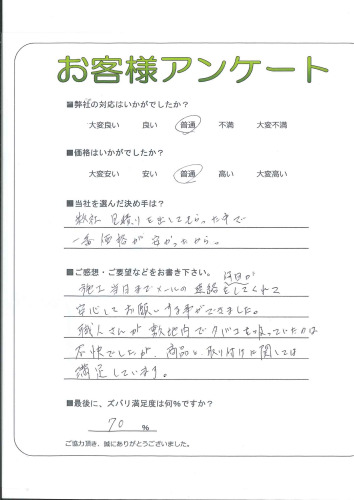 お客様アンケート
■弊社の対応はいかがでしたか?
大変良い 良い 普通 不満 大変不満
■価格はいかがでしたか?
大変安い 安い 普通 高い 大変高い
■当社を選んだ決め手は?
数社 見積りを出してもらった中で
一番価格が安かったから。
■ご感想・ご要望などをお書き下さい。
何回か
施工当日までメールの連絡をしてくれて
安心してお願いする事ができました。
職人さんが敷地内でタバコを吸っていたのは
不快でしたが、商品と取り付けに関しては
満足しています。
■最後に、ズバリ満足度は何%ですか?
70 %
ご協力頂き、誠にありがとうございました。